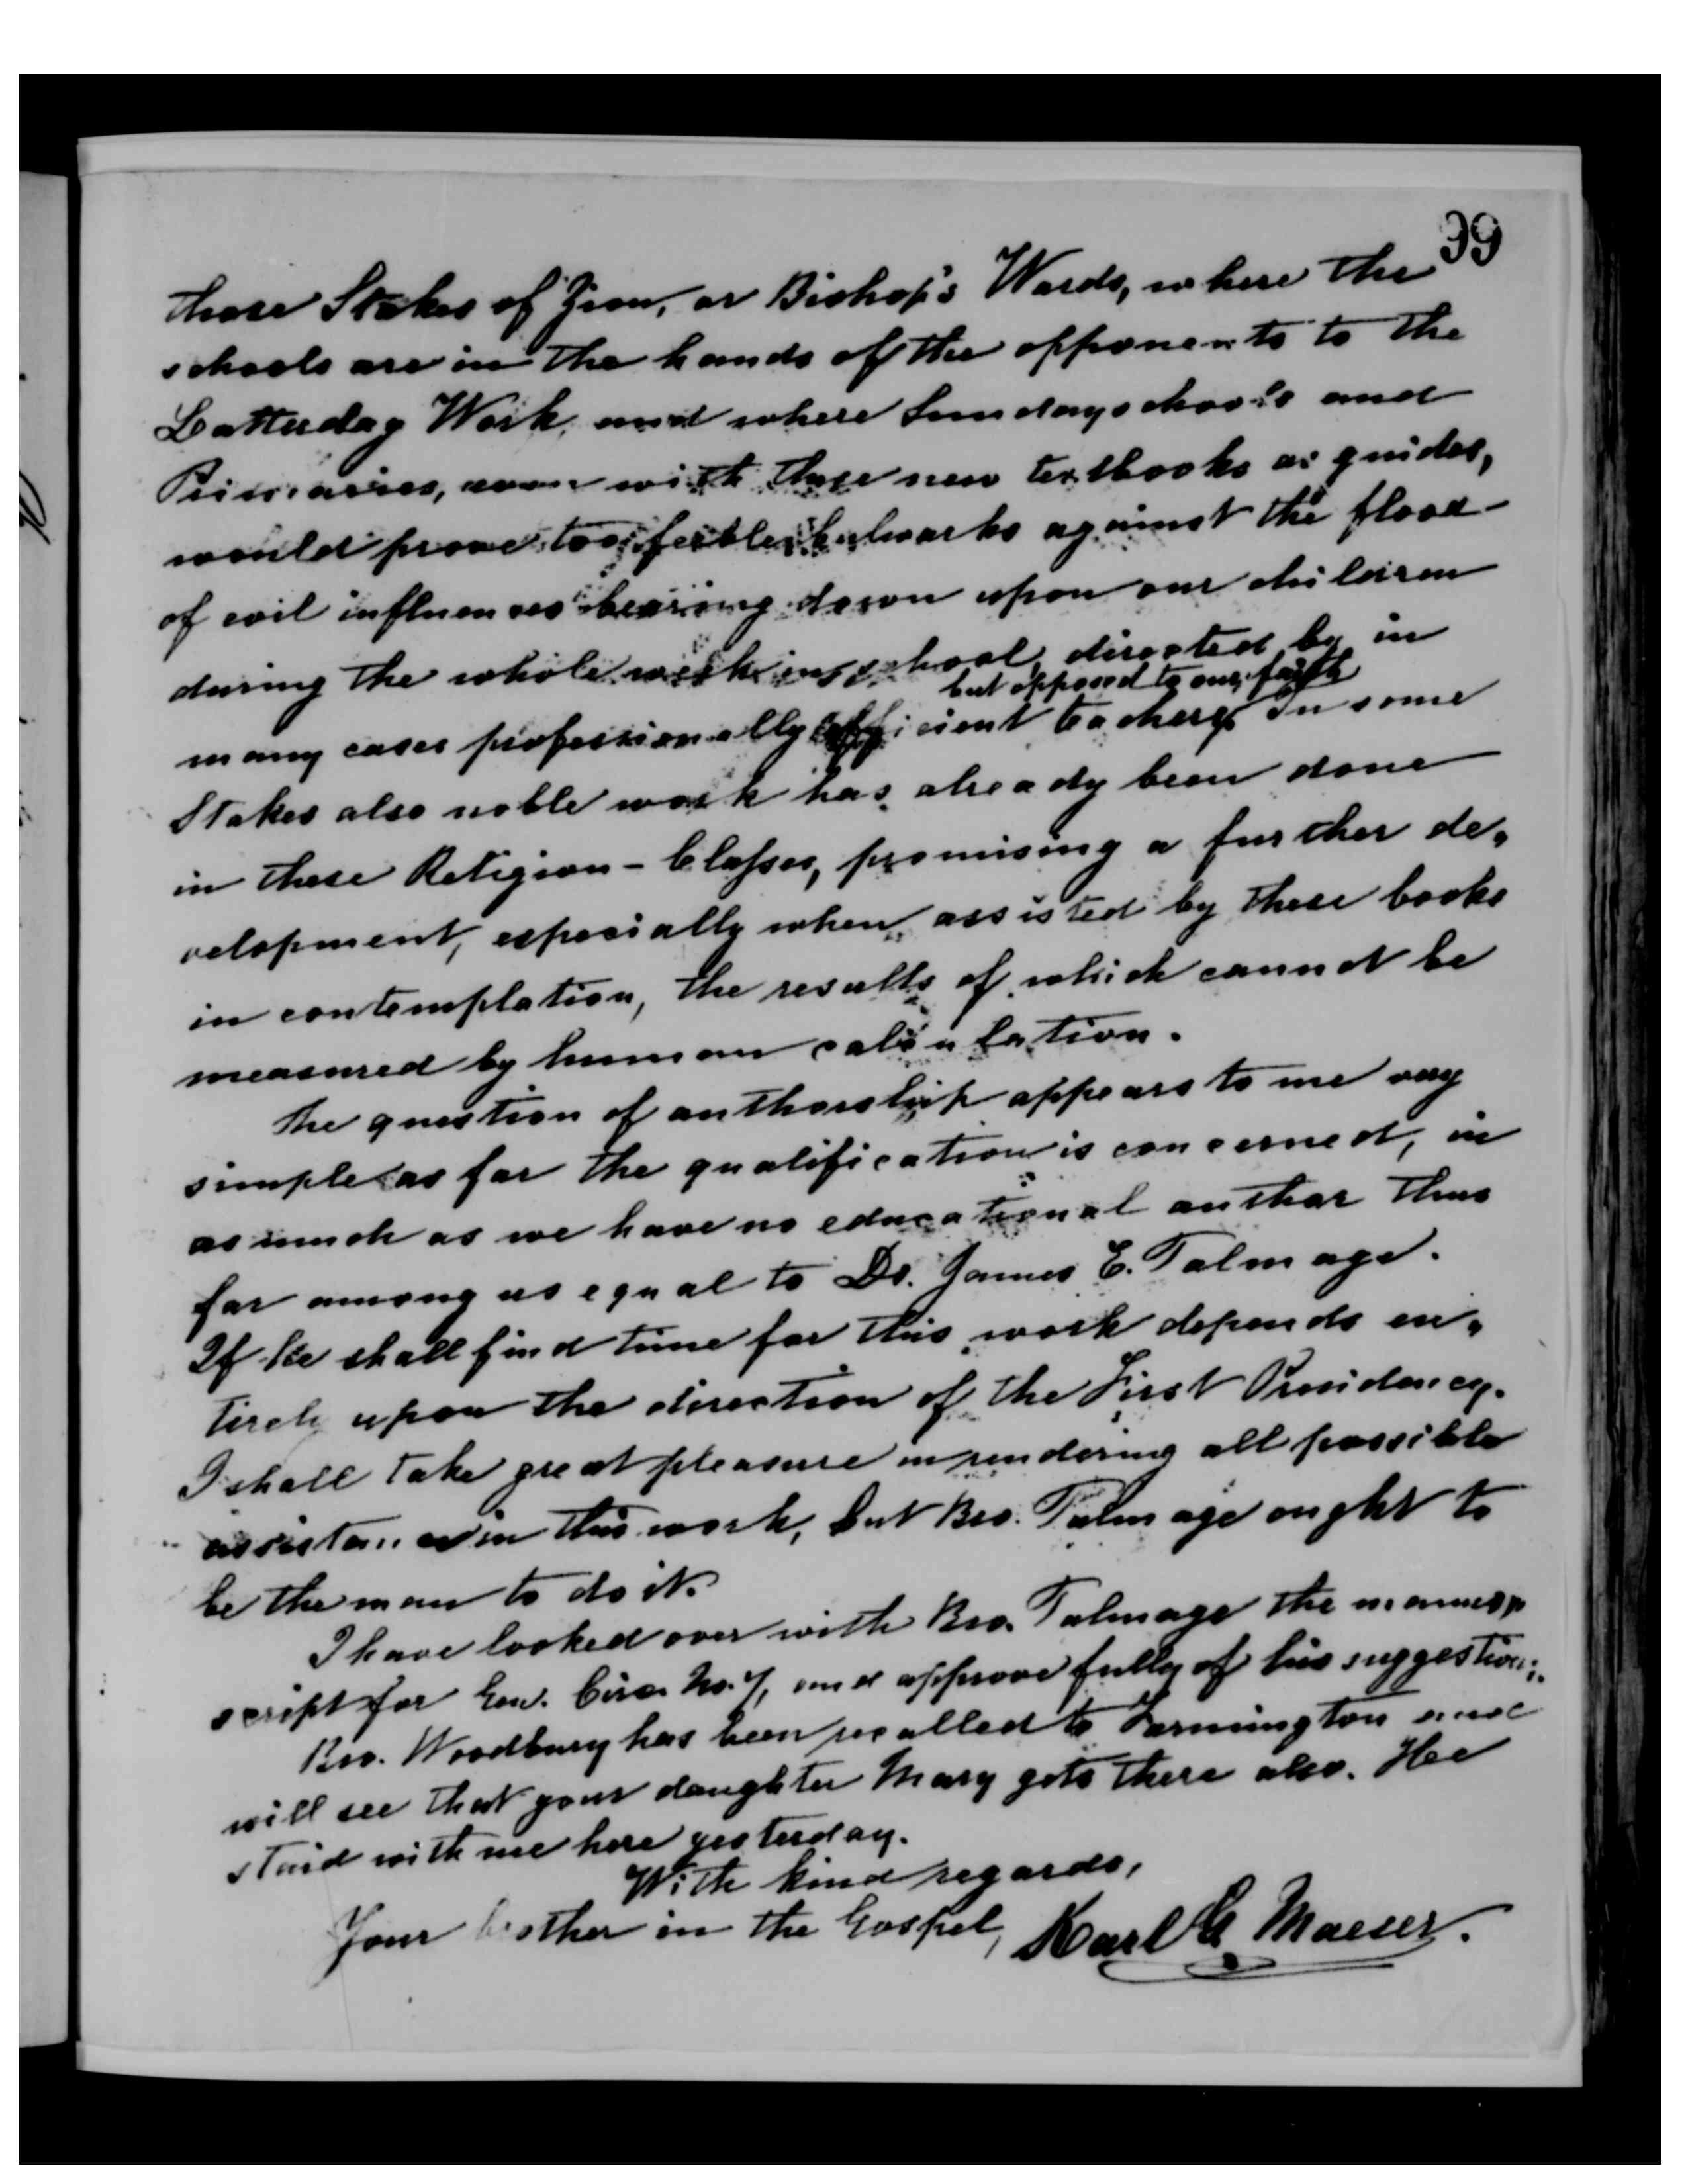 39
those Stakes of Zion, or Bishop's Wards, where the
schools are in the hands of the opponents to the
Latterday Work, and where Sundayschools and
Primaries, even with these new textbooks as guides,
would prove too feeble bulwarks against the flood
of evil influences bearing down upon our children
during the whole week in school, directed by in
but opposed to our faith
many cases professionally efficient teachers. In some
Stakes also noble work has already been done
in these Religion-Classes, promising a further de-
velopment, especially when assisted by these books
in contemplation, the results of which cannot be
measured by human calculation.
The question of authorship appears to me very
simple as far the qualification is concerned, in
as much as we have no educational author thus
far among us equal to Dr. James E. Talmage.
If he shall find time for this work depends en-
tirely upon the direction of the First Presidency.
I shall take great pleasure in rendering all possible
assistance in this work, but Bro. Talmage ought to
be the man to do it.
I have looked over with Bro. Talmage the manu-
script for Gen. Circ. No. 7, and approve fully of his suggestions.
Bro. Woodbury has been recalled to Farmington and
will see that your daughter Mary gets there also. Hee
staid with me here yesterday.
With kind regards,
Your brother in the Gospel, Karl G. Maeser.